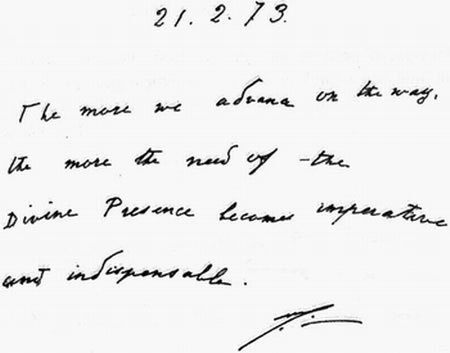 21.2.73.
The more we advance on the way,
the more the need of the
Divine Presence becomes imperative
and indispensable.